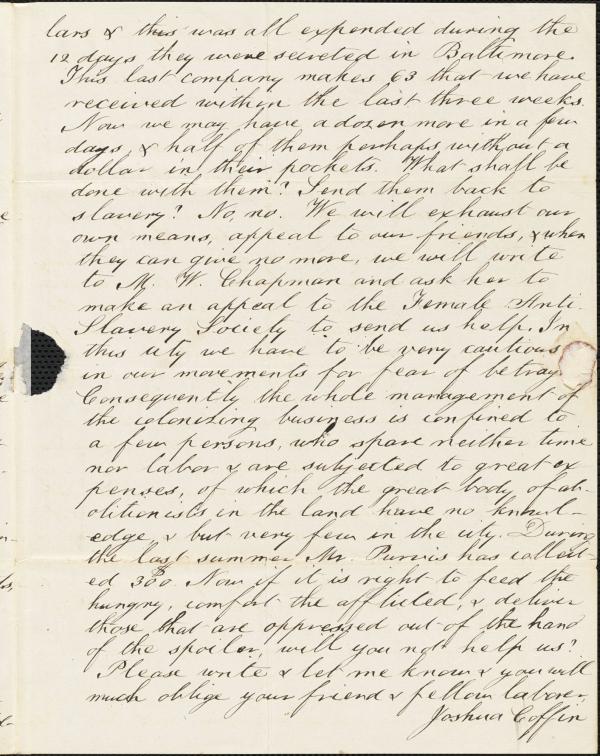 lars & this was all expended during the
12 days they were secreted in Baltimore.
This last company makes 63 that we have
received within the last three weeks.
Now we may have a dozen more in a few
days, & half of them perhaps without a
dollar in their pockets. What shall be
done with them? Send them back to
slavery? No, no. We will exhaust our
own means, appeal to our friends, & when
they can give no more, we will write
to M. W. Chapman and ask her to
make an appeal to the Female Anti-
Slavery Society to send us help. In
this city we have to be very cautious
in our movements for fear of betray
Consequently the whole management of
the colonizing business is confined to
a few persons, who spare neither time
nor labor & are subjected to great ex
penses, of which the great body of ab-
olitionists in the land have no knowl-
edge & but very few in the city. During
the last summer Mr. Purvis has collect-
ed 300. Now if it is right to feed the
hungry, comfort the afflicted, & deliver
those that are oppressed out of the hand
of the spoiler, will you not help us?
Please write & let me know & you will
much oblige your friend & fellow laborer,
Joshua Coffin